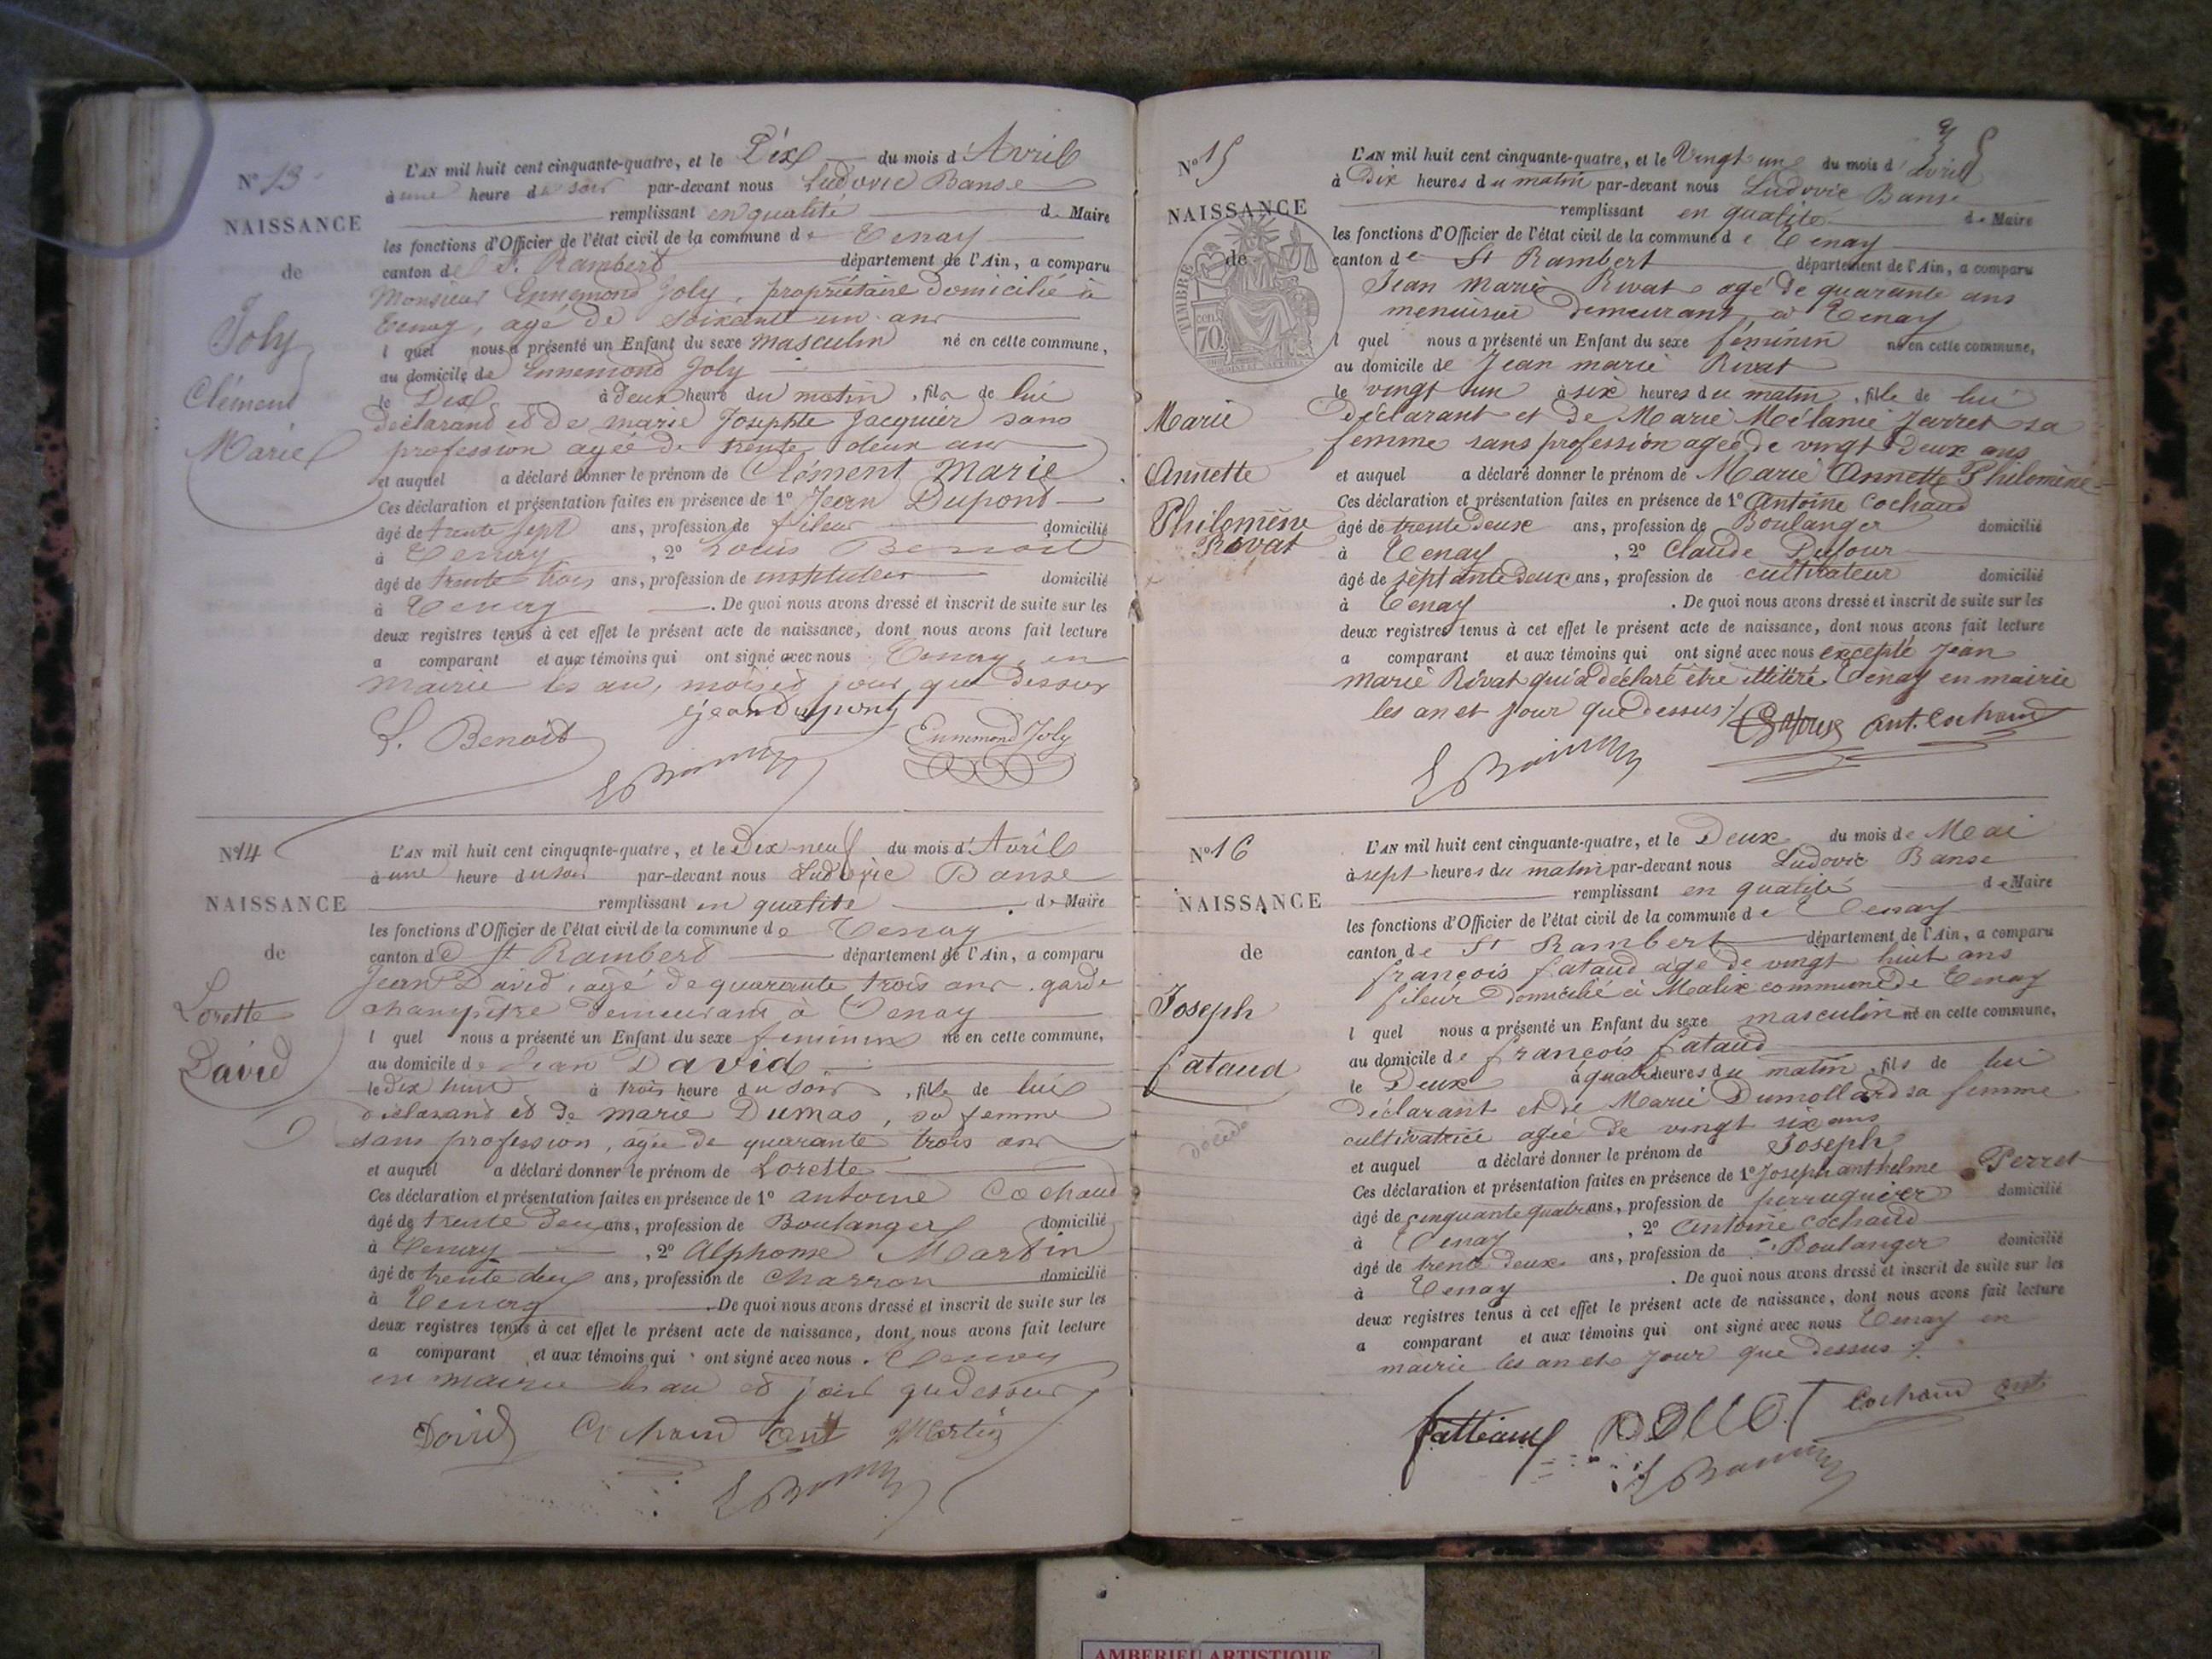 N° 13
NAISSANCE
de
Joly
Clément
Marie
L'AN mil huit cent cinquante-quatre, et le Dix du mois d'Avril
à une heure du soir par-devant nous Ludovic Banse
remplissant en qualité de Maire
les fonctions d'Officier de l'état civil de la commune de Tenay
canton de St Rambert département de l'Ain, a comparu
Monsieur Ennemond Joly, propriétaire domicilié à
Tenay, agé de soixante un ans
l quel nous a présenté un Enfant du sexe masculin né en cette commune,
au domicile de Ennemond Joly
le Dix à deux heure du matin, fils de lui
déclarand et de marie Josephte Jacquier sans
profession agée de trente deux ans
et auquel a déclaré donner le prénom de Clément Marie
Ces déclaration et présentation faites en présence de 1° Jean Dupont
âgé de trente sept ans, profession de fileur domicilié
à Tenay, 2° Louis Benoit
âgé de trente trois ans, profession de instituteur domicilié
à Tenay. De quoi nous avons dressé et inscrit de suite sur les
deux registres tenus à cet effet le présent acte de naissance, dont nous avons fait lecture
a comparant et aux témoins qui ont signé avec nous Tenay, en
mairie les an, mois et jour que dessus
L. Benoit jean Dupont Ennemond Joly
N° 14
NAISSANCE
de
Lorette
David
L'AN mil huit cent cinquante-quatre, et le Dix-neuf du mois d'Avril
à une heure du soir par-devant nous Ludovic Banse
remplissant en qualité de Maire
les fonctions d'Officier de l'état civil de la commune de Tenay
canton de St Rambert département de l'Ain, a comparu
Jean David, agé de quarante trois ans, garde
champêtre demeurant à Tenay
l quel nous a présenté un Enfant du sexe feminin né en cette commune,
au domicile de Jean David
le dix huit à trois heure du soir, fille de lui
déclarand et de marie Dumas, sa femme
sans profession, agée de quarante trois ans
et auquel a déclaré donner le prénom de Lorette
Ces déclaration et présentation faites en présence de 1° antoine Cochaud
âgé de trente deux ans, profession de Boulanger domicilié
à Tenay, 2° Alphonse Martin
âgé de trente deux ans, profession de charron domicilié
à Tenay. De quoi nous avons dressé et inscrit de suite sur les
deux registres tenus à cet effet le présent acte de naissance, dont nous avons fait lecture
a comparant et aux témoins qui ont signé avec nous. Tenay
en mairie les an et jour que dessus
David Cochaud ant Martin
N° 15
NAISSANCE
de
TIMBRE
70
Marie
Annette
Philomène
Rivat
L'AN mil huit cent cinquante-quatre, et le Vingt un du mois d'avril
à Dix heures du matin par-devant nous Ludovic Banse
remplissant en qualité de Maire
les fonctions d'Officier de l'état civil de la commune de Tenay
canton de St Rambert département de l'Ain, a comparu
Jean Marie Rivat agé de quarante ans
menuisier demeurant à Tenay
l quel nous a présenté un Enfant du sexe féminin né en cette commune,
au domicile de Jean marie Rivat
le vingt un à six heures du matin, fille de lui
déclarant et de Marie Mélanie Jarret sa
femme sans profession agée de vingt deux ans
et auquel a déclaré donner le prénom de Marie Annette Philomène
Ces déclaration et présentation faites en présence de 1° Antoine Cochaud
âgé de trente deux ans, profession de Boulanger domicilié
à Tenay, 2° Claude Dufour
âgé de septante deux ans, profession de cultivateur domicilié
à Tenay. De quoi nous avons dressé et inscrit de suite sur les
deux registres tenus à cet effet le présent acte de naissance, dont nous avons fait lecture
a comparant et aux témoins qui ont signé avec nous excepté Jean
marie Rivat qui a déclaré être illitéré. Tenay en mairie
les an et jour que dessus
ant. Cochaud
N° 16
NAISSANCE
de
Joseph
fataud
décédé
L'AN mil huit cent cinquante-quatre, et le Deux du mois de Mai
à sept heures du matin par-devant nous Ludovic Banse
remplissant en qualité de Maire
les fonctions d'Officier de l'état civil de la commune de Tenay
canton de St Rambert département de l'Ain, a comparu
françois fataud agé de vingt huit ans
fileur domicilié à Malix commune de Tenay
l quel nous a présenté un Enfant du sexe masculin né en cette commune,
au domicile de françois fataud
le Deux à quatre heures du matin, fils de lui
déclarant et de Marie Dumollard sa femme
cultivatrice agée de vingt six ans
et auquel a déclaré donner le prénom de Joseph
Ces déclaration et présentation faites en présence de 1° Joseph anthelme Perret
âgé de cinquante quatre ans, profession de perruquier domicilié
à Tenay, 2° Antoine Cochaud
âgé de trente deux ans, profession de Boulanger domicilié
à Tenay. De quoi nous avons dressé et inscrit de suite sur les
deux registres tenus à cet effet le présent acte de naissance, dont nous avons fait lecture
a comparant et aux témoins qui ont signé avec nous Tenay en
mairie les an et jour que dessus
Cochaud ant
AMBERIEU ARTISTIQUE